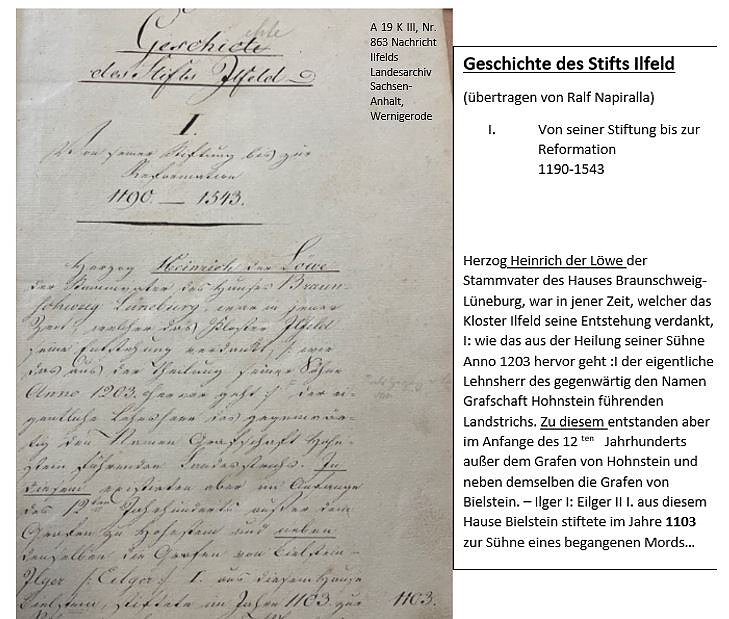 Geschicte
des Stifts Ilfeld
I.
Von seiner Stiftung bis zur
Reformation
1190. — 1543.
Herzog Heinrich der Löwe
der Stammvater des Hauses Braun-
schweig Lüneburg, war in jener
Zeit, welcher das Kloster Ilfeld
seine Entstehung verdankt, /: wie
das aus der Theilung seiner Söhne
Anno 1203. hervor geht :/ der ei-
gentliche Lehnsherr des gegenwär-
tig den Namen Grafschaft Hohn-
stein führenden Landstrichs. In
diesem existirten aber im Anfange
des 12ten Jahrhunderts außer dem
Grafen zu Hohnstein und neben
denselben die Grafen von Bielstein -
Ilger /: Eilger :/ I. aus diesem Hause
Bielstein, stiftete im Jahre 1103. zur 1103.
A 19 K III, Nr.
863 Nachricht
Ilfelds
Landesarchiv
Sachsen-
Anhalt,
Wernigerode
Geschichte des Stifts Ilfeld
(übertragen von Ralf Napiralla)
I. Von seiner Stiftung bis zur
Reformation
1190-1543
Herzog Heinrich der Löwe der
Stammvater des Hauses Braunschweig-
Lüneburg, war in jener Zeit, welcher das
Kloster Ilfeld seine Entstehung verdankt,
I: wie das aus der Heilung seiner Sühne
Anno 1203 hervor geht :I der eigentliche
Lehnsherr des gegenwärtig den Namen
Grafschaft Hohnstein führenden
Landstrichs. Zu diesem entstanden aber
im Anfange des 12 ten Jahrhunderts
außer dem Grafen von Hohnstein und
neben demselben die Grafen von
Bielstein. – Ilger I: Eilger II I. aus diesem
Hause Bielstein stiftete im Jahre 1103
zur Sühne eines begangenen Mords…